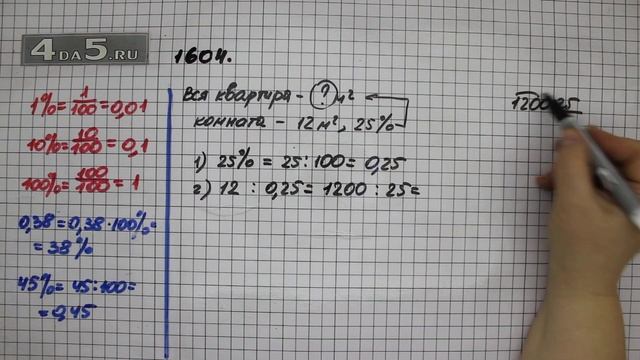 4DA5.RU
1604.
1% = 1/100 = 0,01
10% = 10/100 = 0,1
100% = 100/100 = 1
0,38 = 0,38 · 100% =
= 38%
45% = 45 : 100 =
= 0,45
Вся квартира - ? м²
комната - 12 м², 25%
1) 25% = 25 : 100 = 0,25
2) 12 : 0,25 = 1200 : 25 =
1200 25